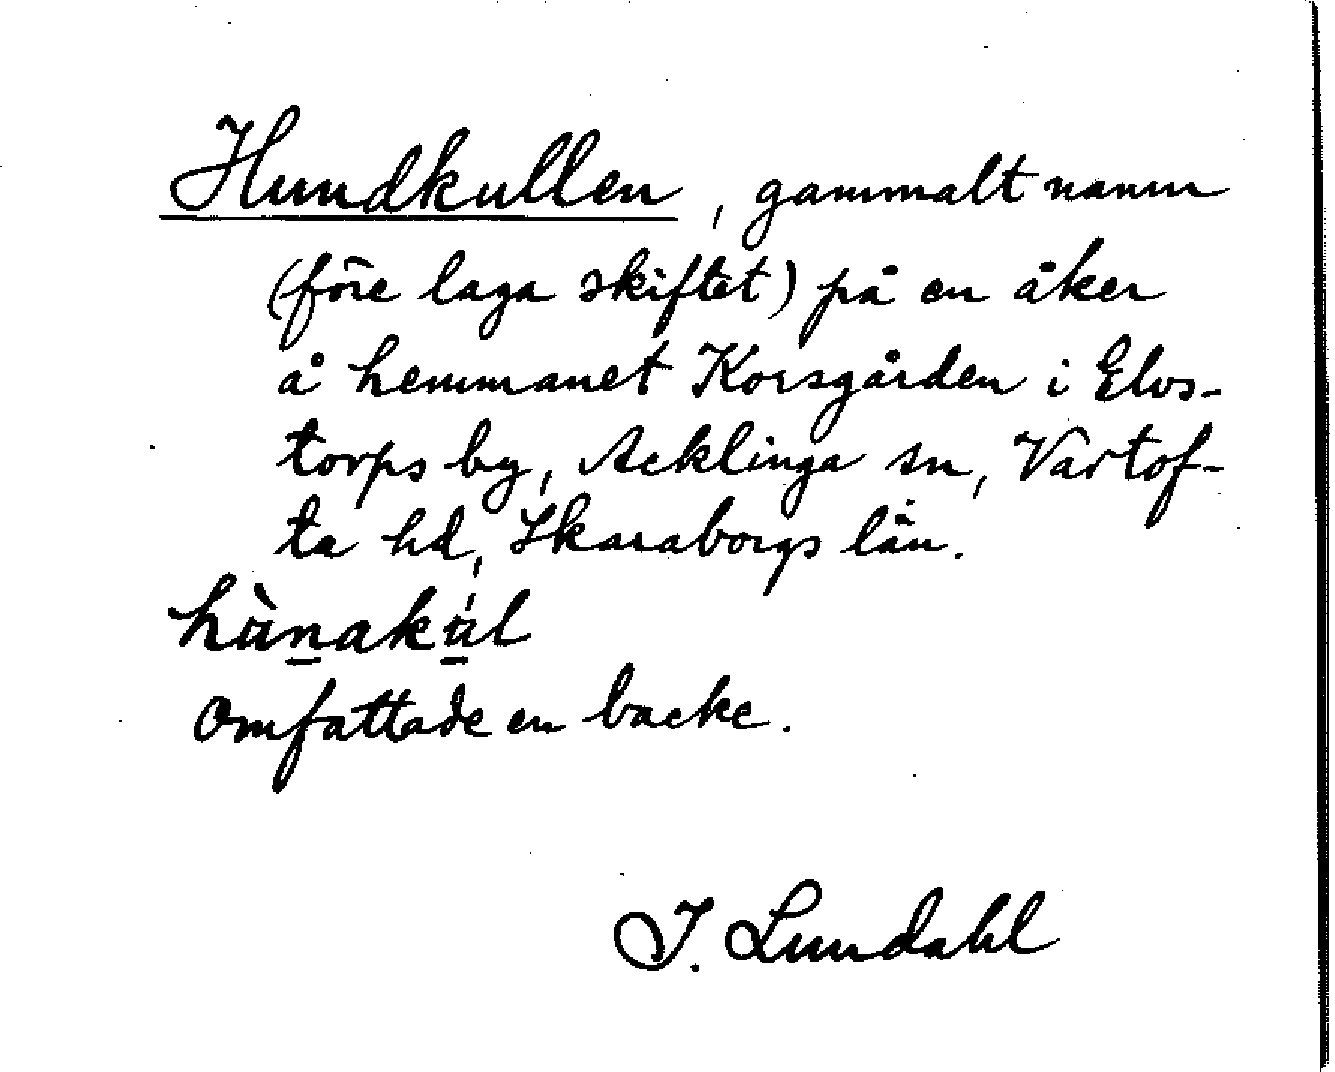 Hundkullen, gammalt namn
(före laga skiftet) på en åker
å hemmanet Korsgården i Elvs-
torps by, Acklinga sn, Vartof-
ta hd, Skaraborgs län.
Omfattade en backe.
I. Lundahl